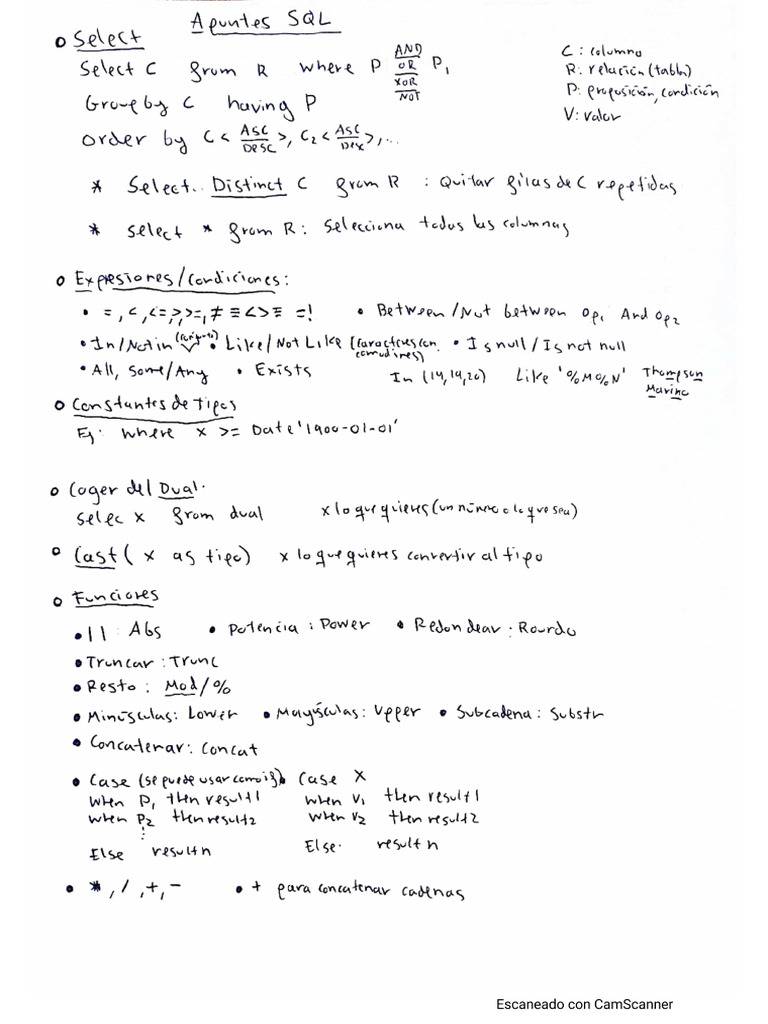 Apuntes SQL
o Select
Select C from R where P AND OR XOR NOT P1
Group by C having P
order by C < ASC/DESC >, C2 < ASC/Desc >, ...
C: columna
R: relación (tabla)
P: proposición, condición
V: valor
* Select.. Distinct C from R : Quitar filas de C repetidas
* select * from R: Selecciona todas las columnas
o Expresiones/Condiciones:
• =, <, <=, >, >=, ≠ ≡ <> ≡ =! • Between/Not between Op1 And Op2
• In/Not in • Like/Not Like (caracteres con comodines) • Is null/Is not null
• All, Some/Any • Exists In (14,19,20) Like '%M%N' Thompson
Marino
o Constantes de Tipos
Ej: where x >= Date '1900-01-01'
o Coger del Dual.
selec x from dual x lo que quieres (un número o lo que sea)
o Cast( x as tipo) x lo que quieres convertir al tipo
o Funciones
• | | : Abs • Potencia : Power • Redondear : Roundo
• Truncar : Trunc
• Resto : Mod/%
• Minúsculas: Lower • Mayúsculas: Upper • Subcadena : Substr
• Concatenar: Concat
• Case (se puede usar como if) Case X
When P1 then result1 when V1 then result1
when P2 then result2 when V2 then result2
⋮
Else result n Else. result n
• *, /, +, - • + para concatenar cadenas
Escaneado con CamScanner